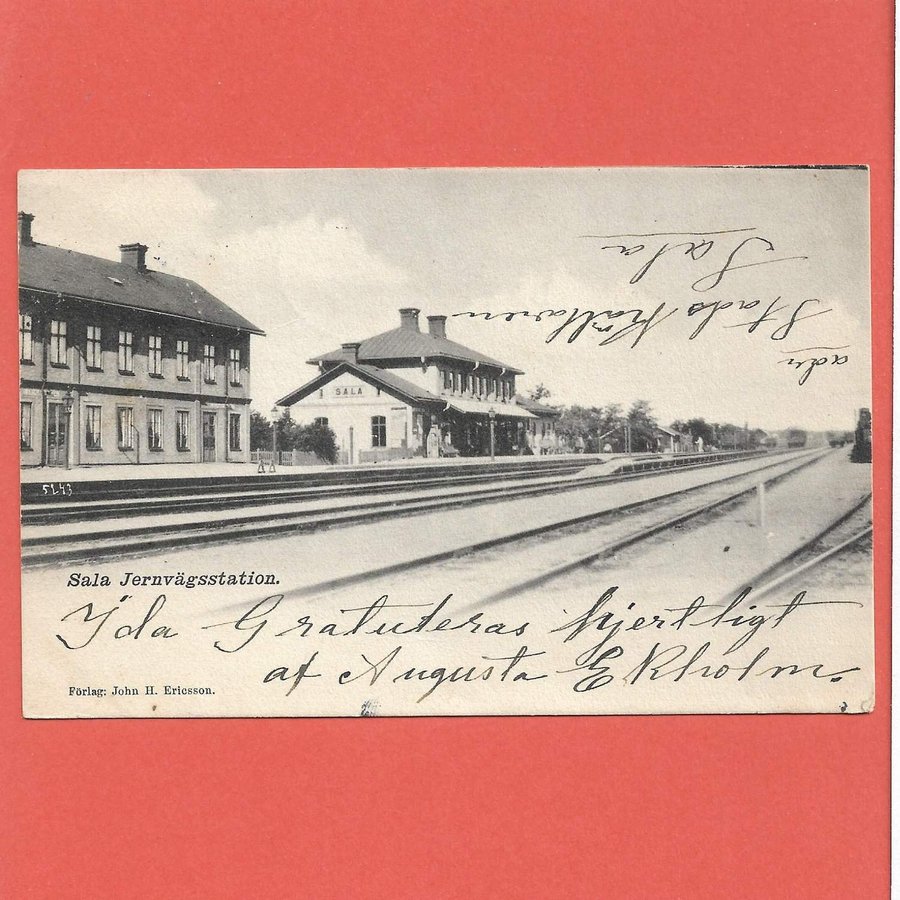 adr
Stads Källaren
Sala
SALA
5243
Sala Jernvägsstation.
Ida Gratuleras hjertligt
af Augusta Ekholm.
Förlag: John H. Ericsson.